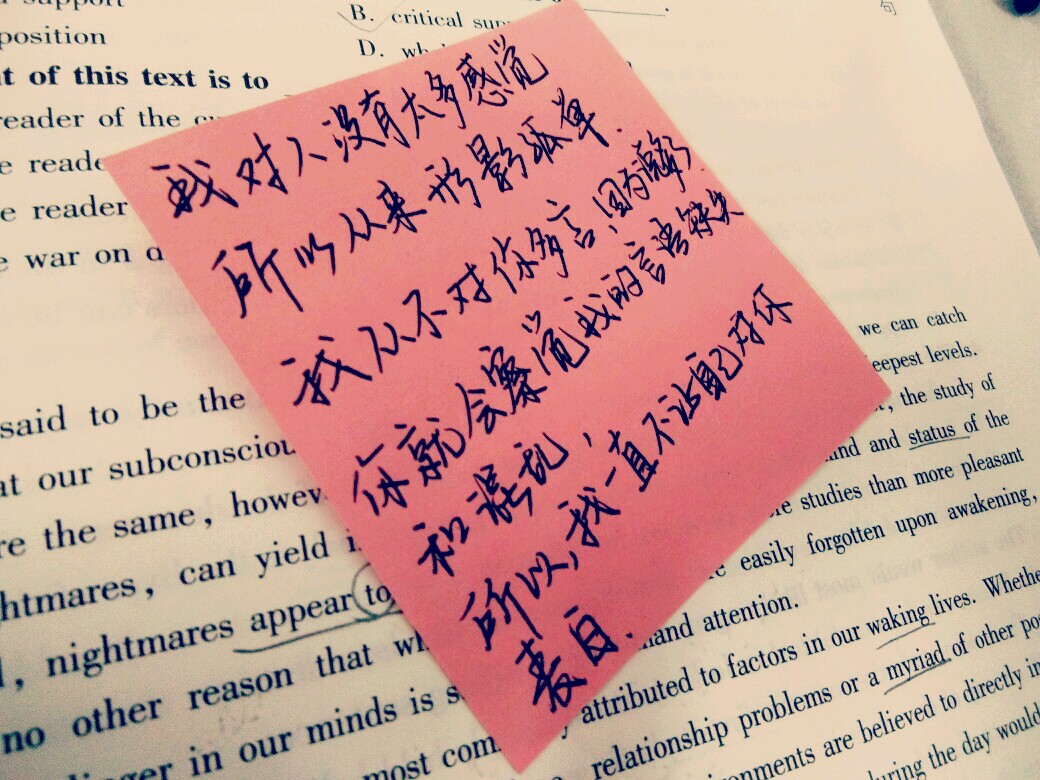 support
B. critical
position
D.
t of this text is to
reader of the
e
e reader
e war on
句
我对人没有太多感觉
所以从来形影孤单.
我从不对你多言,因为
你就会察觉我的言语缺失
和误乱,
所以,我一直不让自己对你
表白.
we can catch
eepest levels.
said to be the
, the study of
at our subconsciou
ind and status of the
re the same, howev
e studies than more pleasant
htmares, can yield
e easily forgotten upon awakening,
, nightmares appear to
and attention.
no other reason that
attributed to factors in our waking lives. Whethe
in our minds is
relationship problems or a myriad of other
most com
onments are believed to directly
uring the day would